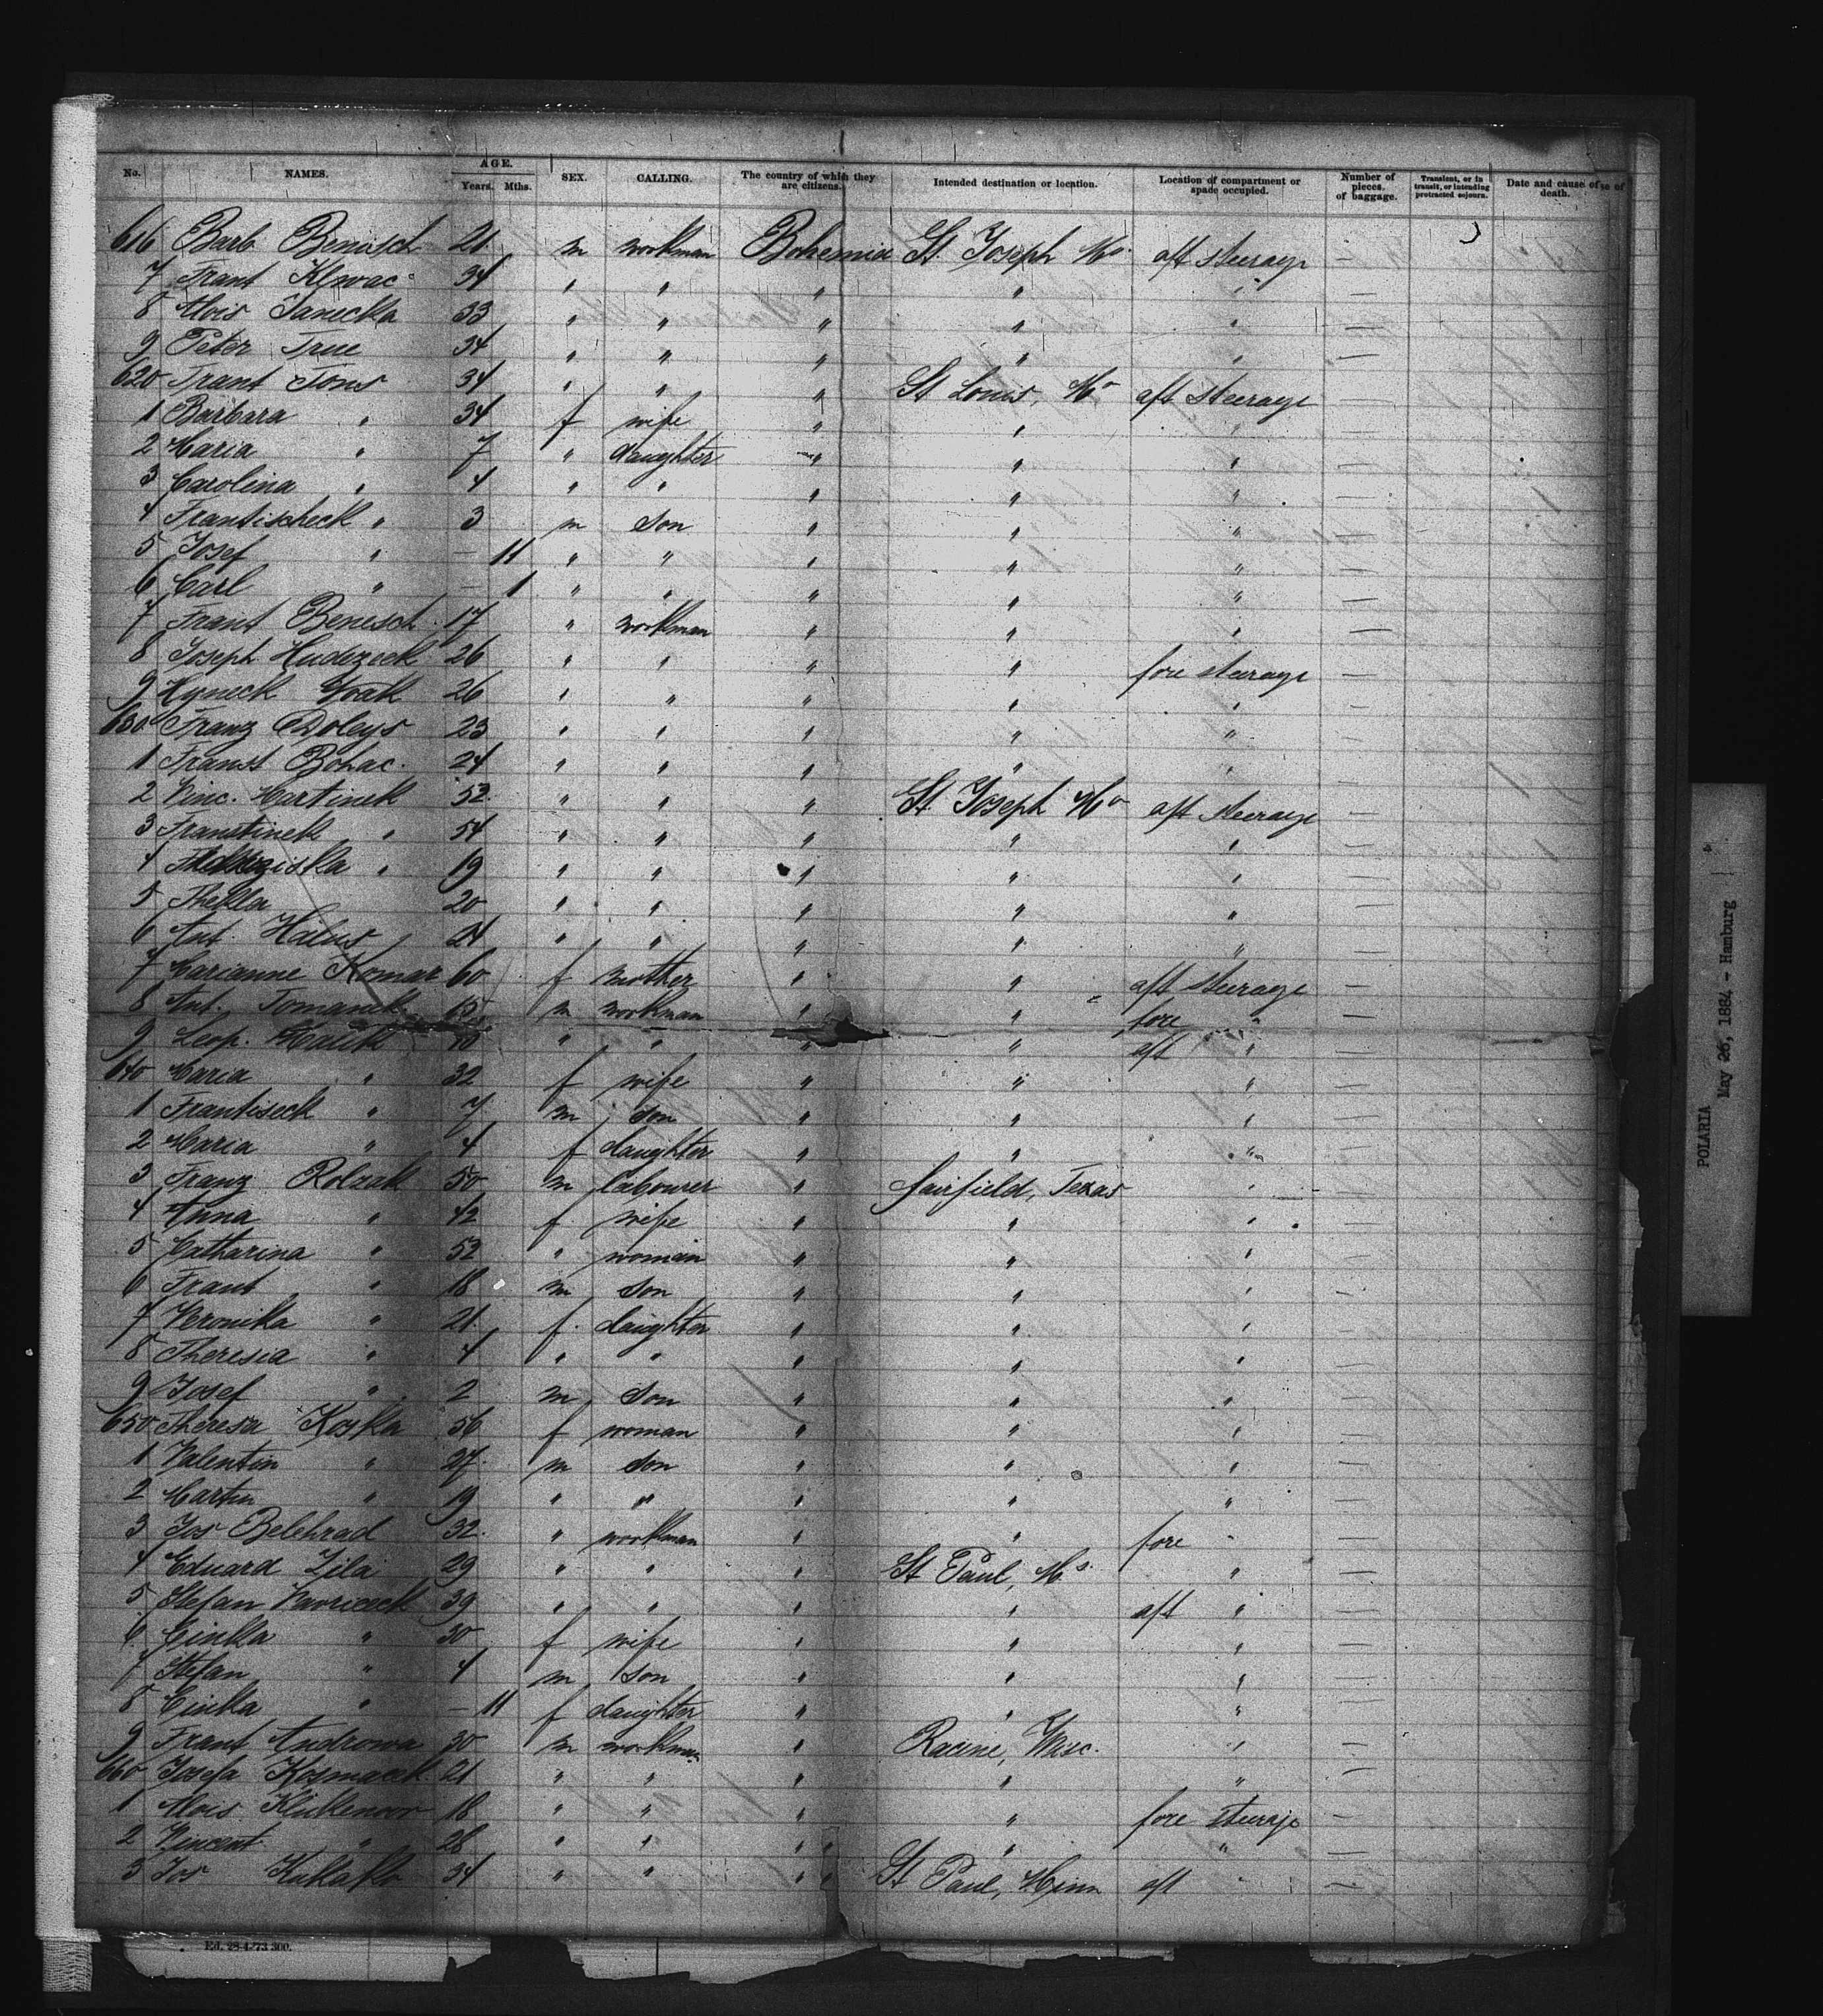 No. NAMES. AGE. Years. Mths. SEX. CALLING. The country of which they are citizens. Intended destination or location. Location of compartment or spade occupied. Number of pieces. of baggage. Transient, or in transit, or intending protracted sojourn. Date and cause of death.
616 Barb Benisch 21 m workman Bohemia St. Joseph Mo aft steerage —
7 Frant 34 " " " " " —
8 Alois Janecka 33 " " " " " —
9 Peter True 34 " " " " " —
620 Frant Tons 34 " " " St Louis, Mo aft steerage —
1 Barbara " 34 f wife " " " —
2 Maria " 7 " daughter " " " —
3 Carolina " 4 " " " " " —
4 Frantischeck " 3 m son " " " —
5 Josef " — 11 " " " " " —
6 Carl " — 1 " " " " " —
7 Frant Benesch 17 " workman " " " —
8 Joseph Hudezeck 26 " " " " fore steerage —
9 Hyneck 26 " " " " " —
630 Franz Doleys 23 " " " " " —
1 Franst Bohac. 24 " " " " " —
2 Vinc. Martinek 52 " " " St. Joseph Mo aft steerage —
3 Franstinek " 54 " " " " " —
4 " 19 " " " " " —
5 Thekla 20 " " " " " —
6 Ant. 24 " " " " " —
7 Marianne Komar 60 f mother " " aft steerage —
8 Ant. Tomanek m workman " " fore " —
9 Leop. " " " " aft " —
640 Maria " 32 f wife " " " —
1 Frantiseck " 7 m son " " " —
2 Maria " 4 f daughter " " " —
3 Franz Rolzak 50 m labourer " Fairfield, Texas " —
4 Anna " 42 f wife " " " —
5 Catharina " 52 " woman " " " —
6 Frant " 18 m son " " " —
7 Veronika " 21 f daughter " " " —
8 Theresia " 4 " " " " " —
9 Josef " 2 m son " " " —
650 Theresa Koska 56 f woman " " " —
1 Valentin " 27 m son " " " —
2 Martin " 19 " " " " " —
3 Jos Belehrad 32 " workman " " fore " —
4 Eduard Zila 29 " " " St Paul, Ms. " —
5 Stefan Navriceck 39 " " " " aft " —
6 Cinka " 30 f wife " " " —
7 Stefan " 4 m son " " " —
8 Cinka " — 11 f daughter " " " —
9 Frant Androwa 30 m workman " Racine, Wisc. " —
660 Josefa Kosmaeck 21 " " " " " —
1 Alois 18 " " " " fore steerage —
2 Vincent " 28 " " " " " —
3 Jos Kukako 34 " " " St Paul, Minn aft " —
Ed. 28-4-73 300.
POLARIA
May 26, 1884 - Hamburg